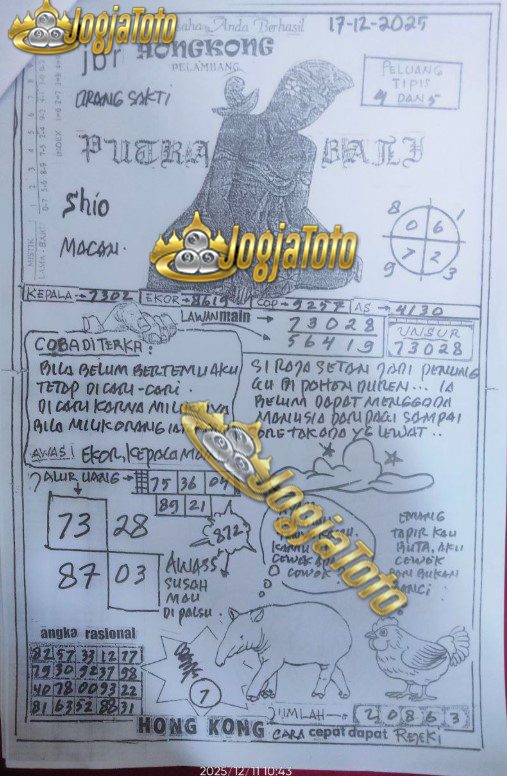 JogjaToto
Anda Berhasil
17-12-2025
jbr HONGKONG
PELAMBANG
PELUANG
TIPIS
4 DAN 5
ORANG SAKTI
PUTRA BALI
Shio
MACAN.
8 1
0 6
7 2
9 3
JogjaToto
KEPALA→7302 EKOR→8619 COP→9257 AS→4130
LAWANmain → 73028
56419
UNSUR
73028
COBA DI TERKA:
BILA BELUM BERTEMU AKU
TETAP DI CARI-CARI.
DI CARI KARNA
BILA MILIK ORANG
AWAS! EKOR, KEPALA
SI RAJA SETAN JADI PENUNG
GU DI POHON DUREN... IA
BELUM DAPAT MENGGODA
MANUSIA DARI PAGI SAMPAI
YG LEWAT..
JogjaToto
JALUR UANG → 75 36 04
89 21
73 28
87 03
872
AWASS
SUSAH
MAU
DI PALSU.
COWOK
COWOK
EMANG
TAPIR KAU
BUTA, AKU
COWEK
DAN BUKAN
angka rasional
82 57 33 12 77
79 30 92 37 98
40 78 00 93 22
81 63 52 88 31
7
JUMLAH → 2 0 8 6 3
HONG KONG CARA cepat dapat REJEKI
2025/12/11 10:43